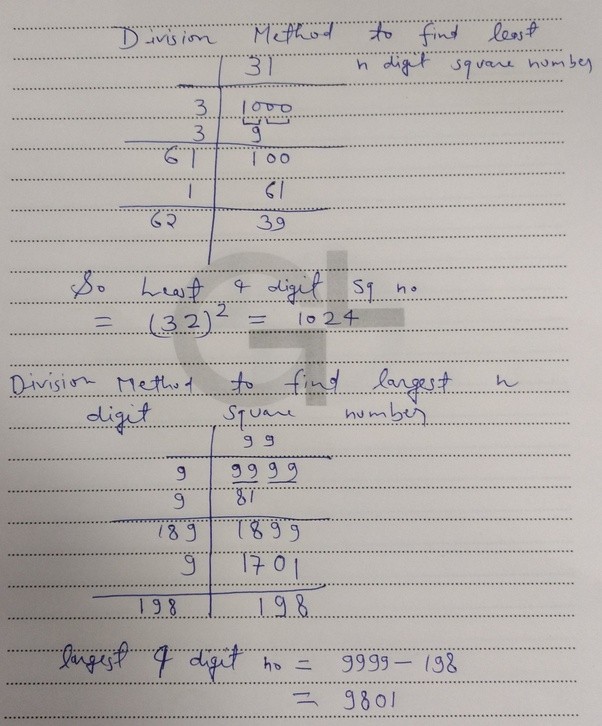 Division Method to find least
n digit square number
31
3 1000
3 9
61 100
1 61
62 39
So Least 4 digit Sq no
= (32)² = 1024
Division Method to find largest n
digit square number
99
9 9999
9 81
189 1899
9 1701
198 198
largest 4 digit no = 9999 - 198
= 9801